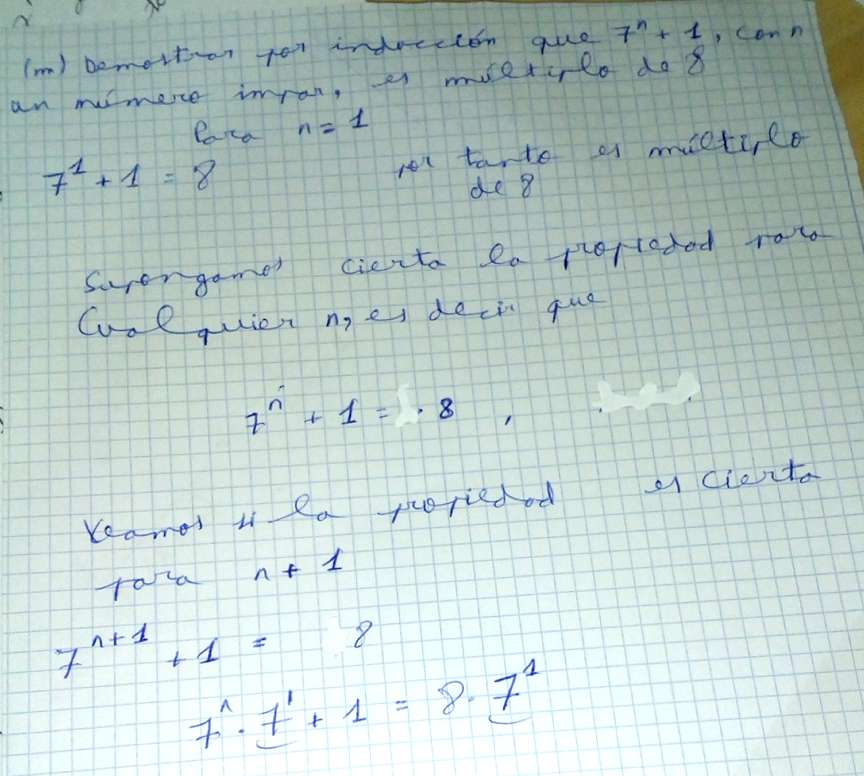 (m) Demostrar por inducción que 7ⁿ + 1, con n
un número impar, es múltiplo de 8
Para n = 1
7¹ + 1 = 8 por tanto es múltiplo
de 8
Supongamos cierta la propiedad para
Cualquier n, es decir que
7ⁿ + 1 = · 8 ,
Veamos si la propiedad es cierta
para n + 1
7ⁿ⁺¹ + 1 = 8
7ⁿ · 7¹ + 1 = 8 · 7¹